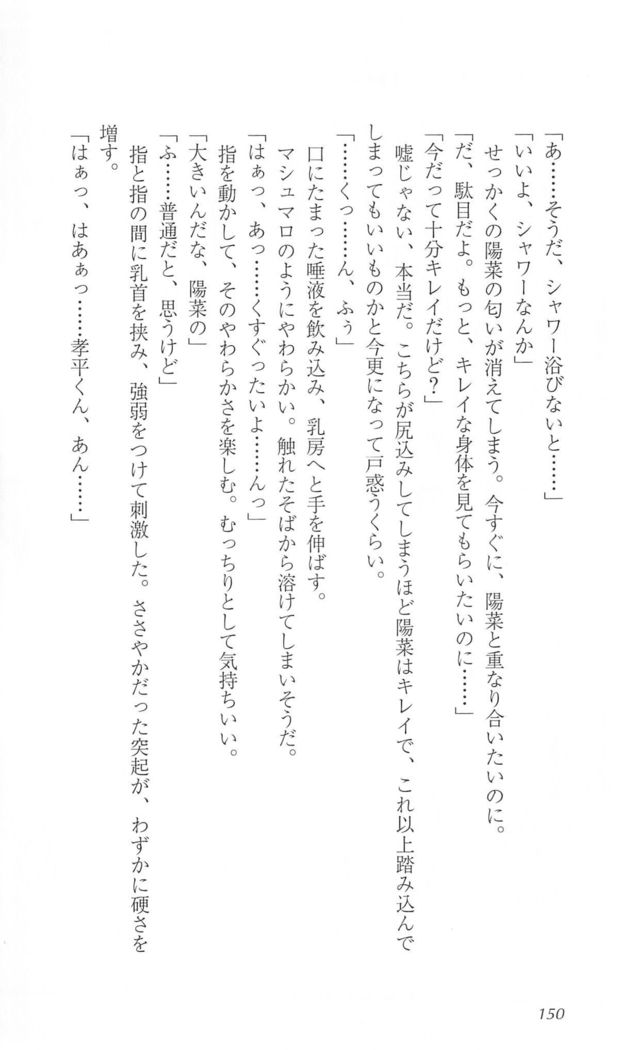 「あ……そうだ、シャワー浴びないと……」
「いいよ、シャワーなんか」
せっかくの陽菜の匂いが消えてしまう。今すぐに、陽菜と重なり合いたいのに。
「だ、駄目だよ。もっと、キレイな身体を見てもらいたいのに……」
「今だって十分キレイだけど？」
嘘じゃない、本当だ。こちらが尻込みしてしまうほど陽菜はキレイで、これ以上踏み込んで
しまってもいいものかと今更になって戸惑うくらい。
「……くっ……ん、ふぅ」
口にたまった唾液を飲み込み、乳房へと手を伸ばす。
マシュマロのようにやわらかい。触れたそばから溶けてしまいそうだ。
「はぁっ、あっ……くすぐったいよ……んっ」
指を動かして、そのやわらかさを楽しむ。むっちりとして気持ちいい。
「大きいんだな、陽菜の」
「ふ……普通だと、思うけど」
指と指の間に乳首を挟み、強弱をつけて刺激した。ささやかだった突起が、わずかに硬さを
増す。
「はぁっ、はあぁっ……孝平くん、あん……」
150